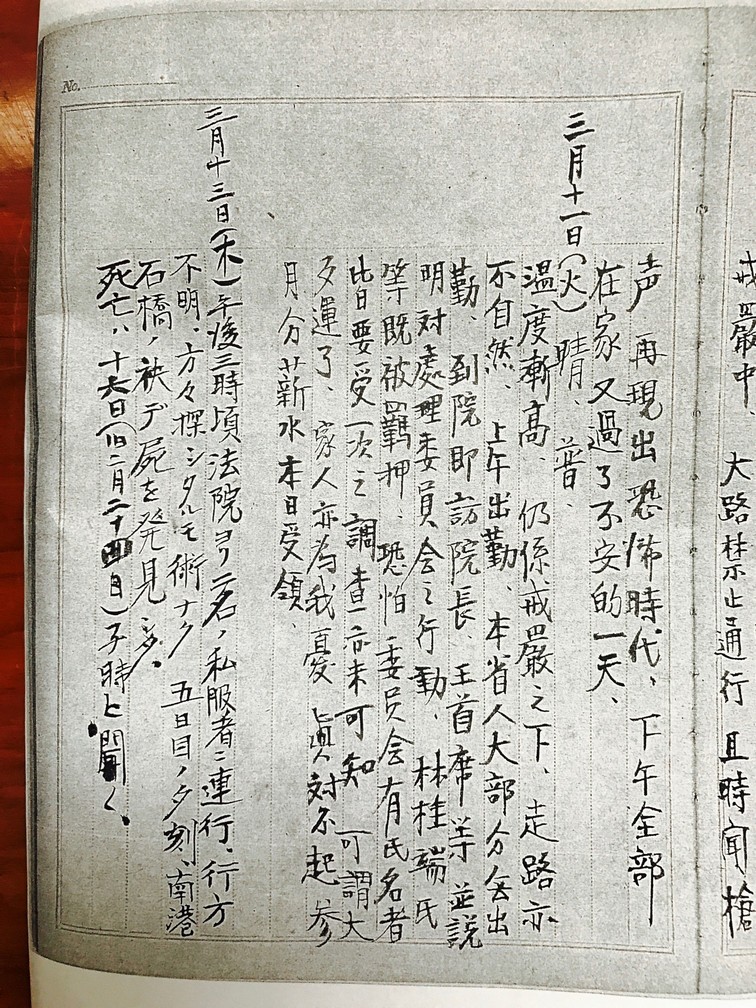 戒嚴中、大路禁止通行 且時聞槍
声 再現出恐怖時代、下午全部
在家 又過了不安的一天、
三月十一日(火) 晴、昔、
溫度漸高、仍係戒嚴之下、走路亦
不自然、上午出勤、本省人大部分無出
勤、到院即訪院長、王首席等 並説
明対處理委員会之行動、林桂端氏
等既被羈押、恐怕委員会有氏名者
比日要受一次之調查亦未可知 可謂大
歹運了、家人亦為我憂、真対不起 参
月分薪水本日受領、
三月十三日(木) 午後三時頃法院ヨリ二名ノ私服者ニ連行、行方
不明、方々探シタルモ術ナク 五日目ノ夕刻、南港
石橋ノ袂デ屍を発見
死亡ハ十六日(旧二月二十四日)子時と聞く、
No.